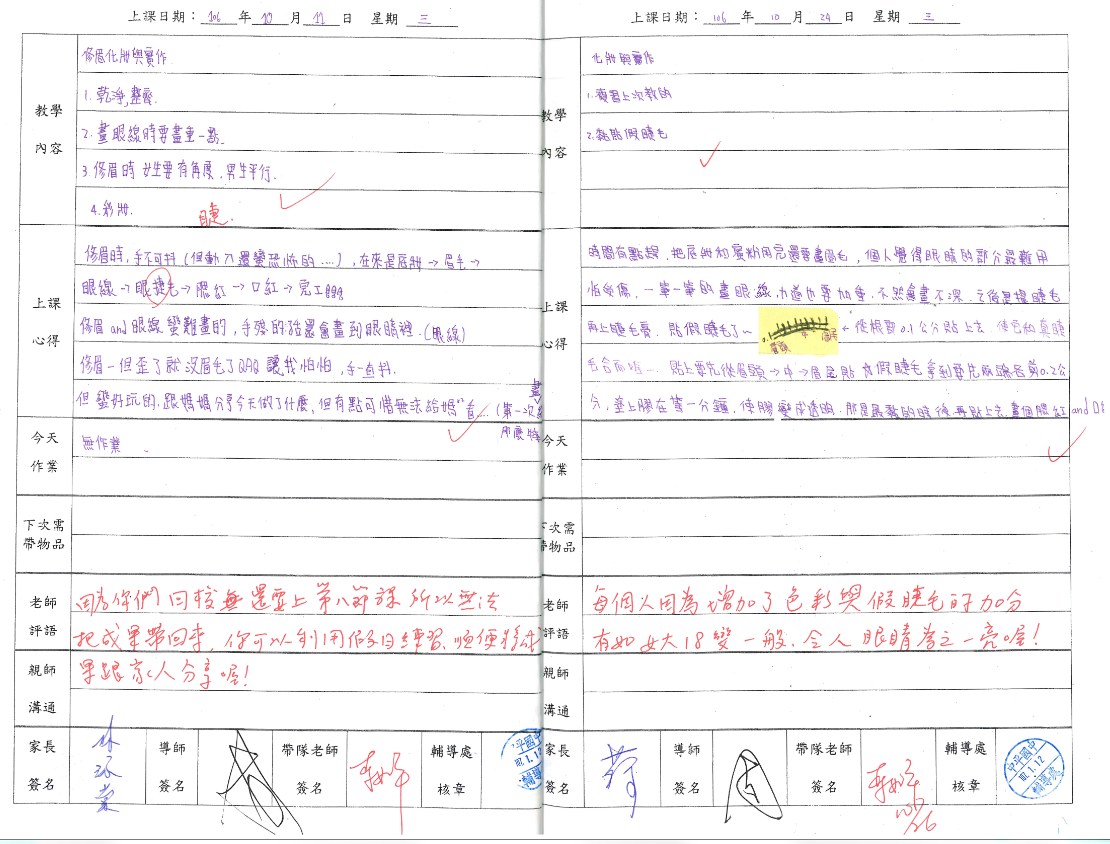 上課日期：106年10月11日 星期三
教學內容
修眉化妝與實作
1.乾淨,整齊.
2.畫眼線時要畫重一點.
3.修眉時女生要有角度.男生平行.
4.彩妝.
睫.
上課心得
修眉時,手不可抖(但動刀還蠻恐怖的....),在來是底妝→眉毛→
眼線→眼捷毛→腮紅→口紅→完工
修眉and眼線蠻難畫的,手殘的話還會畫到眼睛裡.(眼線)
修眉一但歪了就沒眉毛了QAQ讓我怕怕,手一直抖.
但蠻好玩的.跟媽媽分享今天做了什麼,但有點可惜無法給媽"看...(第一次
畫
那麼
今天作業
無作業
下次需帶物品
老師評語
因為你們回校無還要上第八節課所以無法
把成果帶回來,你可以利用假日練習,順便將成
果跟家人分享喔!
親師溝通
家長簽名
導師簽名
帶隊老師簽名
輔導處核章
上課日期：106年10月24日 星期三
教學內容
化妝與實作
1.複習上次教的
2.黏貼假睫毛
上課心得
時間有點趕,把底妝和蜜粉用完還要畫眉毛,個人覺得眼睛的部分最難用
怕受傷,一筆一筆的畫眼線,力道也要加重,不然會畫不深.之後是搜睫毛
再上睫毛膏,貼假睫毛了~
0.1
眉頭
←從根部0.1公分貼上去,使它和真睫
毛合而唔...貼上要先從眉頭→中→眉尾貼
假睫毛拿到要先兩端各剪0.2公
分,塗上膠在等一分鐘,使膠變成透明,那是最黏的時後再貼上去.畫個腮紅and口紅
今天作業
下次需帶物品
老師評語
每個人因為增加了色彩與假睫毛的加分
有如女大18變一般,令人眼睛為之一亮喔!
親師溝通
家長簽名
導師簽名
帶隊老師簽名
10/26
輔導處核章
中平國中
107.1.12
輔導處